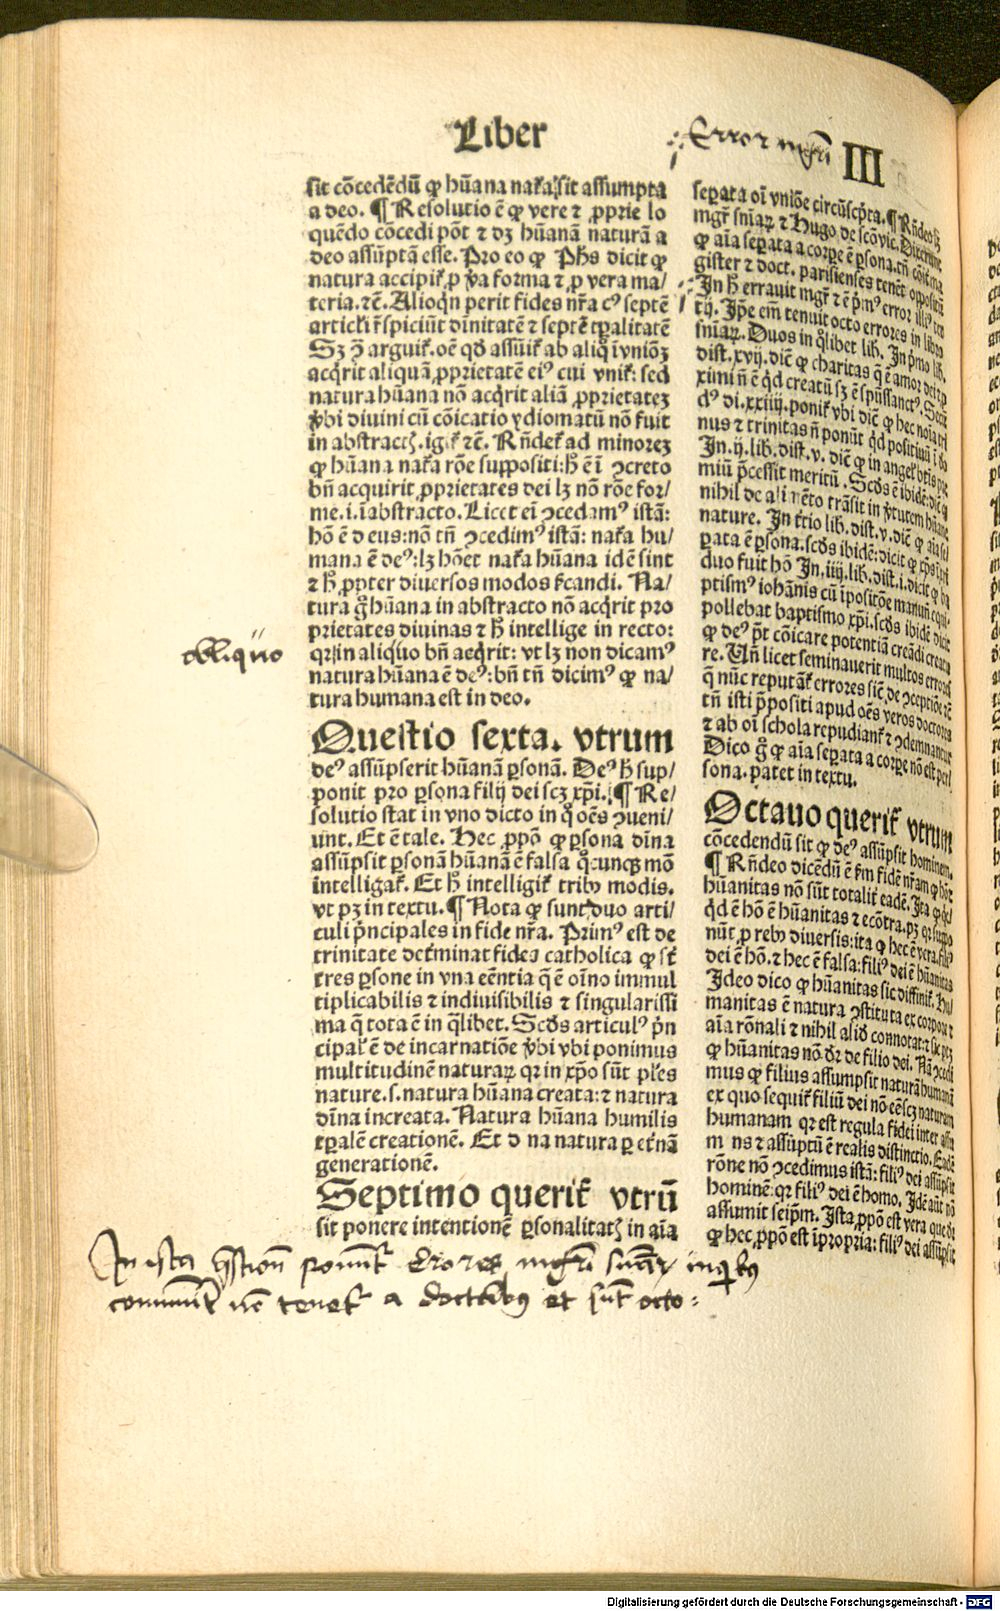 Liber
Error mgri III
sit cōcedēdū ꝙ hūana nat̄a sit assumpta
a deo. ¶ Resolutio ē ꝙ vere ⁊ ꝓprie lo
quēdo cōcedi pōt ⁊ dꝫ hūanā naturā a
deo assūptā esse. Pro eo ꝙ Phs dicit ꝙ
natura accipit̄ ꝓ p̄a forma ⁊ ꝓ vera ma/
teria. ⁊c̄. Alioqn perit fides nr̄a cꝰ septē
articli r̄spiciūt diuitatē ⁊ septē tꝑalitatē
Sꝫ ꝯ̄ arguit̄. oē qd̄ assūit̄ ab aliq̊ ī vniōꝫ
acq̄rit aliquā ꝓprietatē eiꝰ cui vnit̄: sed
natura hūana nō acq̄rit aliā ꝓprietateꝫ
v̄bi diuini cū cōicatio ydiomatū nō fuit
in abstracto. igit̄ ⁊c̄. Rn̄det̄ ad minoreꝫ
ꝙ hūana nat̄a rōe suppositi: h̄ ē ī ꝯcreto
bn̄ acquirit ꝓprietates dei lꝫ nō rōe for/
me. i. ī abstracto. Licet eī ꝯcedamꝰ istā:
hō ē deus: nō tn̄ ꝯcedimꝰ istā: nat̄a hu/
mana ē deꝰ: lꝫ hōet nat̄a hūana idē sint
⁊ h̄ ꝓpter diuersos modos s̄candi. Na/
tura g̊ hūana in abstracto nō acq̄rit pro
prietates diuinas ⁊ h̄ intellige in recto:
qꝛ in aliquo bn̄ acq̄rit: vt lꝫ non dicamꝰ
natura hūana ē deꝰ: bn̄ tn̄ dicimꝰ ꝙ na/
tura humana est in deo.
obliquo
Questio sexta. vtrum
deꝰ assūpserit hūanā ꝑsonā. Deꝰ h̄ sup/
ponit pro ꝑsona filij dei scꝫ xp̄i. ¶ Re/
solutio stat in vno dicto in q̊ oēs ꝯueni/
unt. Et ē tale. Hec ꝓpō ꝙ ꝑsona dīna
assūpsit ꝑsonā hūanā ē falsa q̊cunqꝫ mō
intelligat̄. Et h̄ intelligit̄ tribꝰ modis.
vt pꝫ in textu. ¶ Nota ꝙ sunt duo arti/
culi p̄ncipales in fide nr̄a. Primꝰ est de
trinitate det̄minat fides catholica ꝙ st̄
tres ꝑsone in vna eēntia q̄ ē oīno immul
tiplicabilis ⁊ indiuisibilis ⁊ singularissi
ma q̄ tota ē in q̄libet. Scd̄s articulꝰ p̄n
cipal̄ ē de incarnatiōe v̄bi vbi ponimus
multitudinē naturaꝝ qꝛ in xp̄o sūt ples
nature. s. natura hūana creata: ⁊ natura
dīna increata. Natura hūana humilis
tꝑalē creationē. Et d na natura ꝑ et̄nā
generationē.
Septimo querit̄ vtrū
sit ponere intentionē ꝑsonalitatꝭ in aīa
seꝑata oī vniōe circūscp̄ta. ¶ Rn̄deo ẜꝫ
mgr̄ sniaꝝ ⁊ Hugo de sc̄o vic. Dixerunt
ꝙ aīa seꝑata a corꝑe ē ꝑsona. tn̄ cōit ma
gister ⁊ doct. parisienses tenēt oppositū
In h̄ errauit mgr̄ ⁊ ē pͥmꝰ error illiꝰ ter
tij. Ipe em̄ tenuit octo errores in libro
sniaꝝ. Duos in q̊libet lib. In pͥmo lib.
dist. xvij. dic̄ ꝙ charitas q̄ ē amor dei ⁊ p
ximi n̄ ē qd̄ creatū sꝫ ē spūssanctꝰ. Secū
dꝰ di. xxiiij. ponit̄ vbi dic̄ ꝙ hec noīa tri
nus ⁊ trinitas n̄ ponūt qd̄ positiuū ī deo
In. ij. lib. dist. v. dic̄ ꝙ in angel̄ btīs pre
miū p̄cessit meritū. Scd̄s ē ibidē: dic̄ ꝙ
nihil de alimēto trāsit in v̄tutem hūane
nature. In t̄tio lib. dist. v. dic̄ ꝙ aīa se
ꝑata ē ꝑsona. scd̄s ibidē: dicit ꝙ xp̄s ī tri
duo fuit hō. In. iiij. lib. dist. i. dicit ꝙ ba
ptismꝰ iohānis cū īpositōe manuū equi
pollebat baptismo xp̄i. scd̄s ibidē dicit
ꝙ deꝰ p̄t cōicare potentiā creādi creatu
re. Un̄ licet seminauerit multos errores
q̄ nūc reputāt̄ errores sic̄ de ꝯceptiōe ⁊c̄
tn̄ isti p̄positi apud oēs veros doctores
⁊ ab oī schola repudiant̄ ⁊ ꝯdemnantur
Dico g̊ ꝙ aīa seꝑata a corꝑe nō est per/
sona. patet in textu.
Octauo querit̄ vtrum
cōcedendū sit ꝙ deꝰ assūpsit hominem.
¶ Rn̄deo dicēdū ē ẜm fidē nr̄am ꝙ hō ⁊
hūanitas nō sūt totalit̄ eadē. Ita ꝙ qc̄
qd̄ ē hō ē hūanitas ⁊ ecōtra. pꝫ qꝛ suppo
nūt ꝓ rebꝰ diuersis: ita ꝙ hec ē vera. filiꝰ
dei ē hō. ⁊ hec ē falsa: filiꝰ dei ē hūanitas
Ideo dico ꝙ hūanitas sic diffinit̄. Hu
manitas ē natura ꝯstituta ex corpore ⁊
aīa rōnali ⁊ nihil aliđ connotat: ⁊ sic pꝫ
ꝙ hūanitas nō dꝛ de filio dei. Nā ꝯcedi
mus ꝙ filius assumpsit naturā humanā
ex quo sequit̄ filiū dei nō eē scꝫ naturam
humanam qꝛ est regula fidei inter assu
m ns ⁊ assūptū ē realis distinctio. Eadē
rōne nō ꝯcedimus istā: filiꝰ dei assūpsit
hominē: qꝛ filiꝰ dei ē homo. Idē aūt nō
assumit seip̄m. Ista ꝓpō est vera que dꝛ
ꝙ hec ꝓpō est ī propria: filiꝰ dei assūpsit
In ista q̄stion̄ ponunt̄ errores mgri sniaꝝ in quibus
communit̄ nō tenet̄ a doctoribus et sunt octo
Digitalisierung gefördert durch die Deutsche Forschungsgemeinschaft - DFG